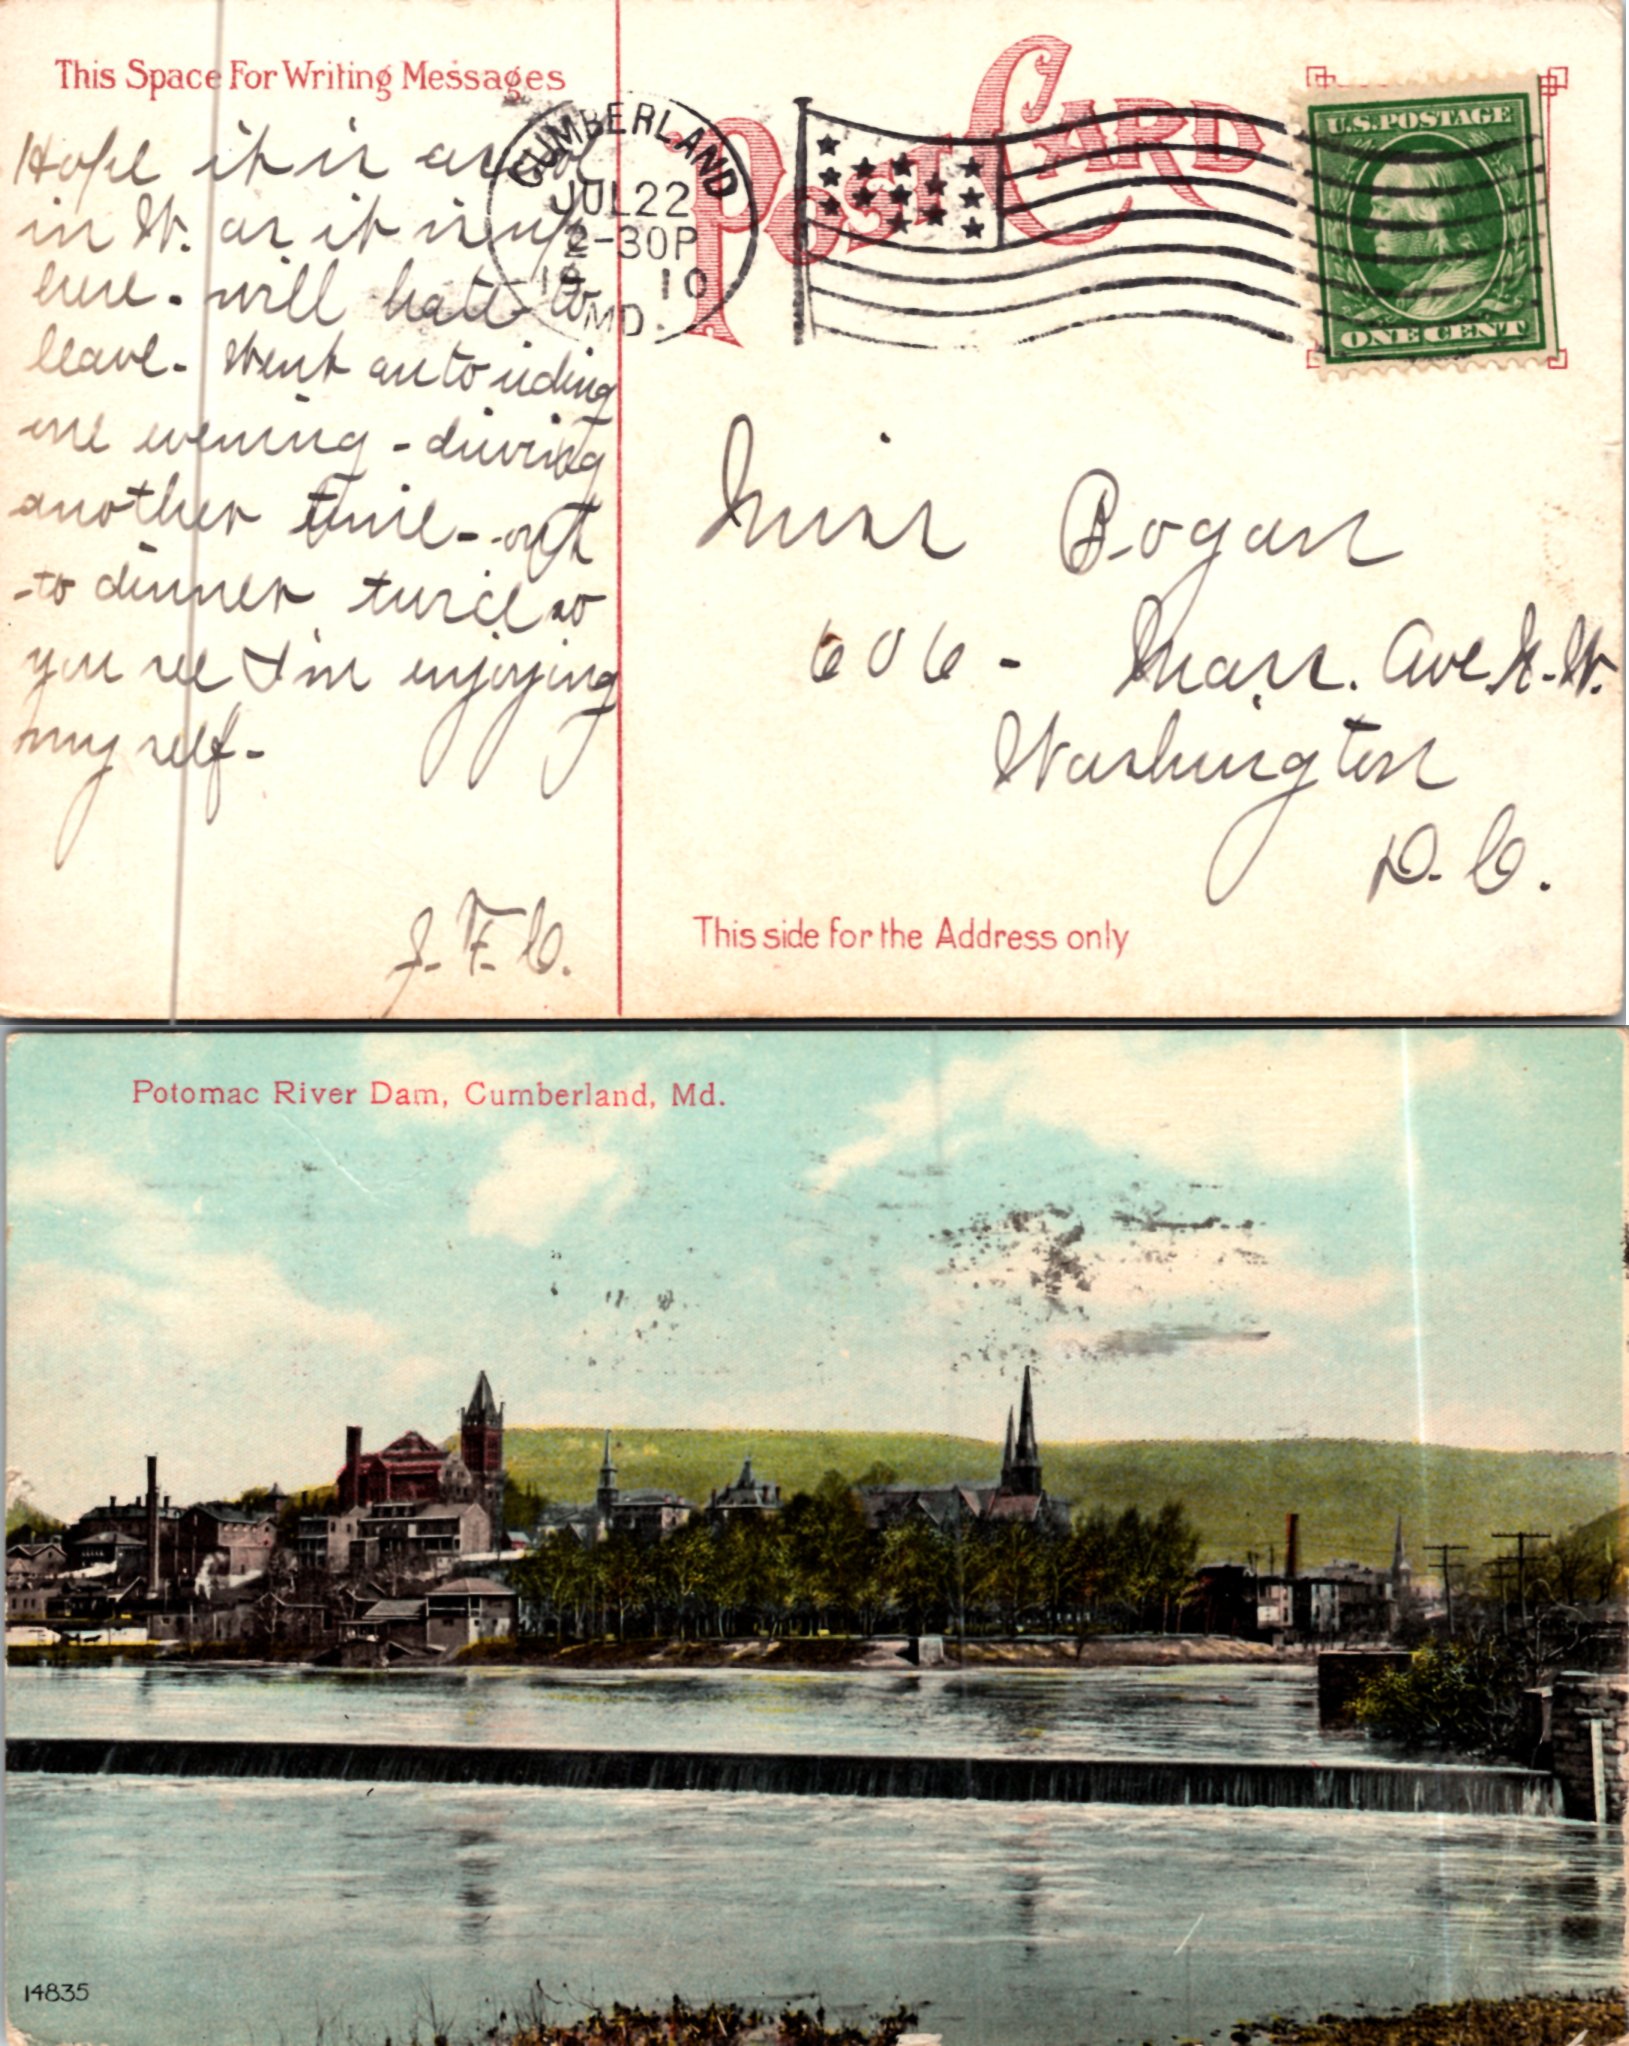 This Space For Writing Messages
POST CARD
CUMBERLAND
JUL 22
2-30P
19 10
MD.
U.S. POSTAGE
ONE CENT
Hope it is as cool
in W. as it is up
here. will hate to
leave. Went auto riding
one evening - driving
another time - out
to dinner twice so
you see I'm enjoying
my self -
J. F. C.
Miss Bogan
606 - Mass. Ave. N. W.
Washington
D. C.
This side for the Address only
Potomac River Dam, Cumberland, Md.
14835